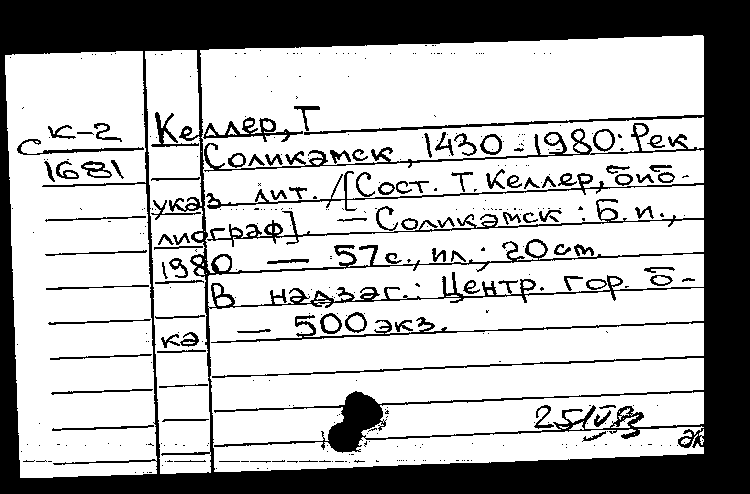 С К-2
1681
Келлер, Т
Соликамск, 1430-1980: Рек.
указ. лит. /[Сост. Т. Келлер, биб-
лиограф]. — Соликамск: Б.и.,
1980 — 57с., ил.; 20 см.
В надзаг.: Центр. гор. б-
ка — 500 экз.